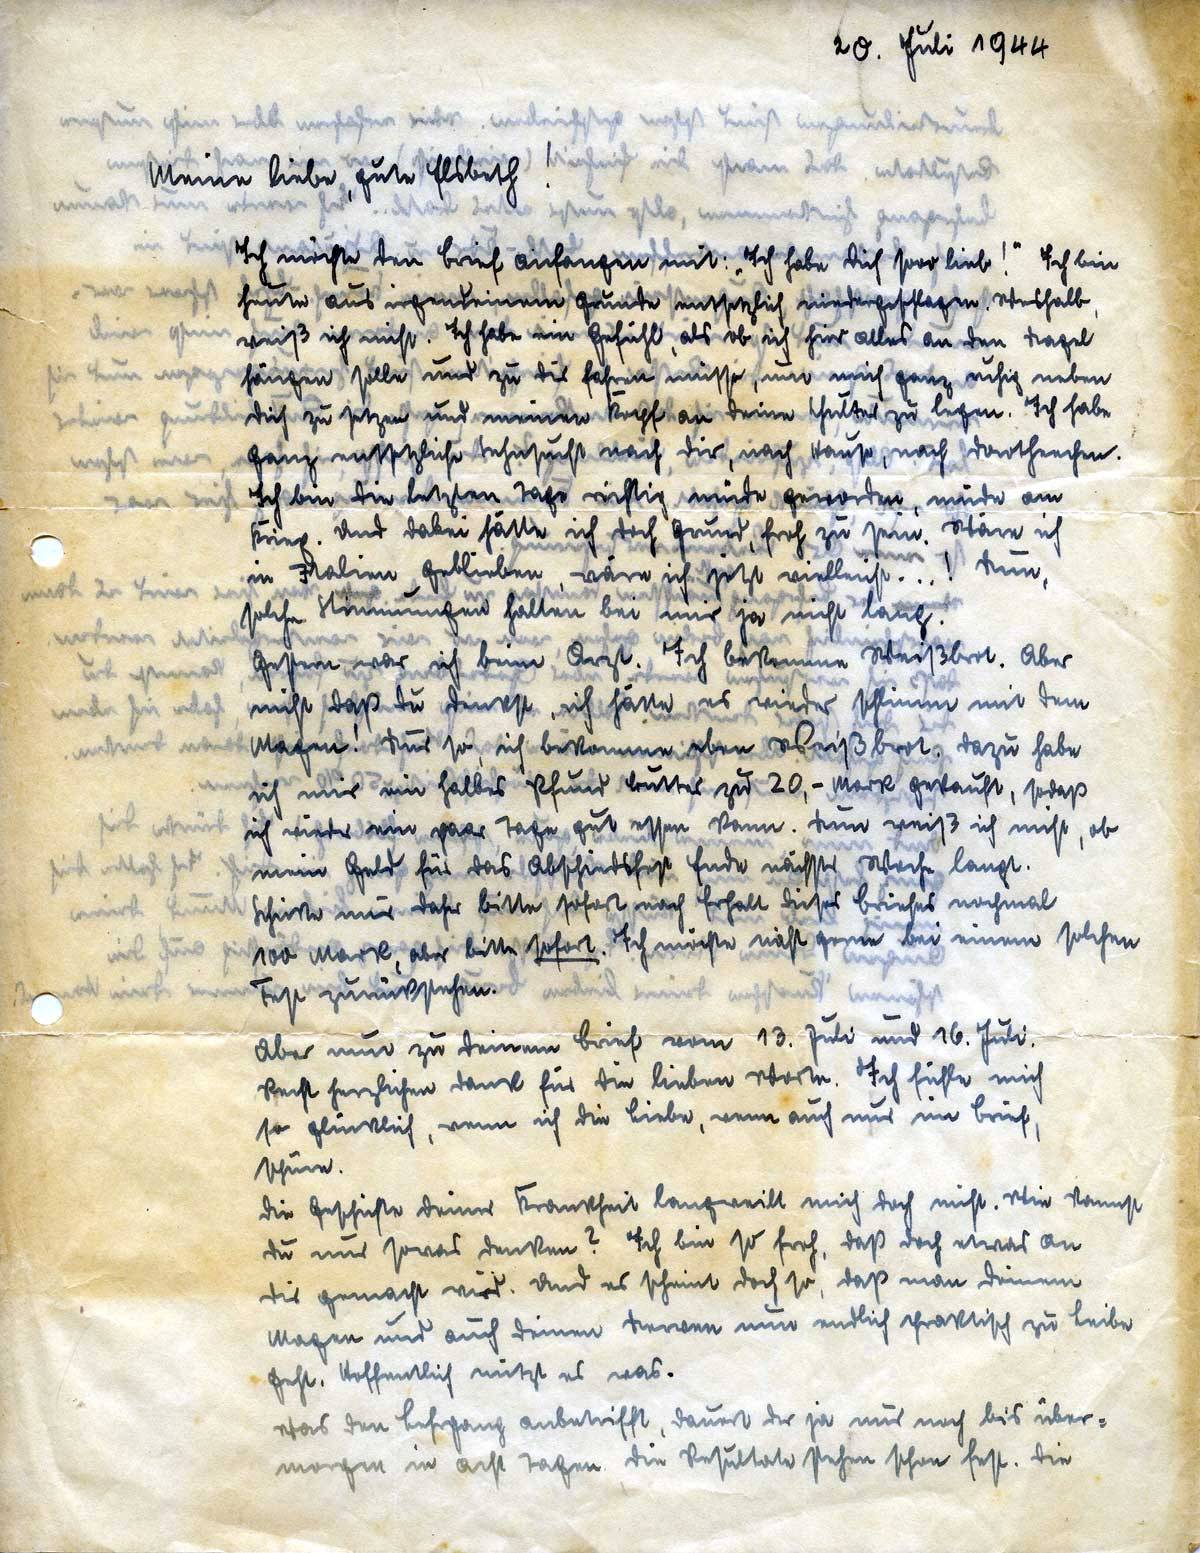 20. Juli 1944
Meine liebe, gute Elsbeth!
Ich möchte den Brief anfangen mit: „Ich habe Dich sooo lieb!" Ich bin
heute aus irgendeinem Grunde entsetzlich niedergeschlagen. Weshalb,
weiß ich nicht. Ich habe ein Gefühl, als ob ich hier alles an den Nagel
hängen solle und zu Dir fahren müsse, um mich ganz ruhig neben
Dich zu setzen und meinen Kopf an Deine Schulter zu legen. Ich habe
ganz entsetzliche Sehnsucht nach Dir, nach Hause, nach Dortheechen.
Ich bin die letzten Tage richtig müde geworden, müde am
Krieg. Und dabei hätte ich doch Grund, froh zu sein. Wäre ich
in Italien geblieben, wäre ich jetzt vielleicht...! Nun,
solche Stimmungen halten bei mir ja nicht lang.
Gestern war ich beim Arzt. Ich bekomme Weißbrot. Aber
nicht daß Du denkst, ich hätte es wieder schlimm mit dem
Magen! Nur so, ich bekomme eben Weißbrot. Dazu habe
ich mir ein halbes Pfund Butter zu 20,- Mark gekauft, sodaß
ich wieder ein paar Tage gut essen kann. Nun weiß ich nicht, ob
mein Geld für das Abschiedsfest Ende nächster Woche langt.
Schicke mir daher bitte sofort nach Erhalt dieses Briefes nochmal
100 Mark, aber bitte sofort. Ich möchte nicht gerne bei einem solchen
Fest zurückstehen.
Aber nun zu Deinem Brief vom 13. Juli und 16. Juli.
Recht herzlichen Dank für die lieben Worte. Ich fühle mich
so glücklich, wenn ich die Liebe, wenn auch nur im Brief,
spüre.
Die Geschichte Deiner Krankheit langweilt mich doch nicht. Wie kannst
Du nur sowas denken? Ich bin so froh, daß doch etwas an
Dir gemacht wird. Und es scheint doch so, daß man Deinem
Magen und auch Deinen Nerven nun endlich praktisch zu Leibe
geht. Hoffentlich nützt es was.
Was den Lehrgang anbetrifft, dauert der ja nur noch bis über=
morgen in acht Tagen. Die Resultate stehen schon fest. Die